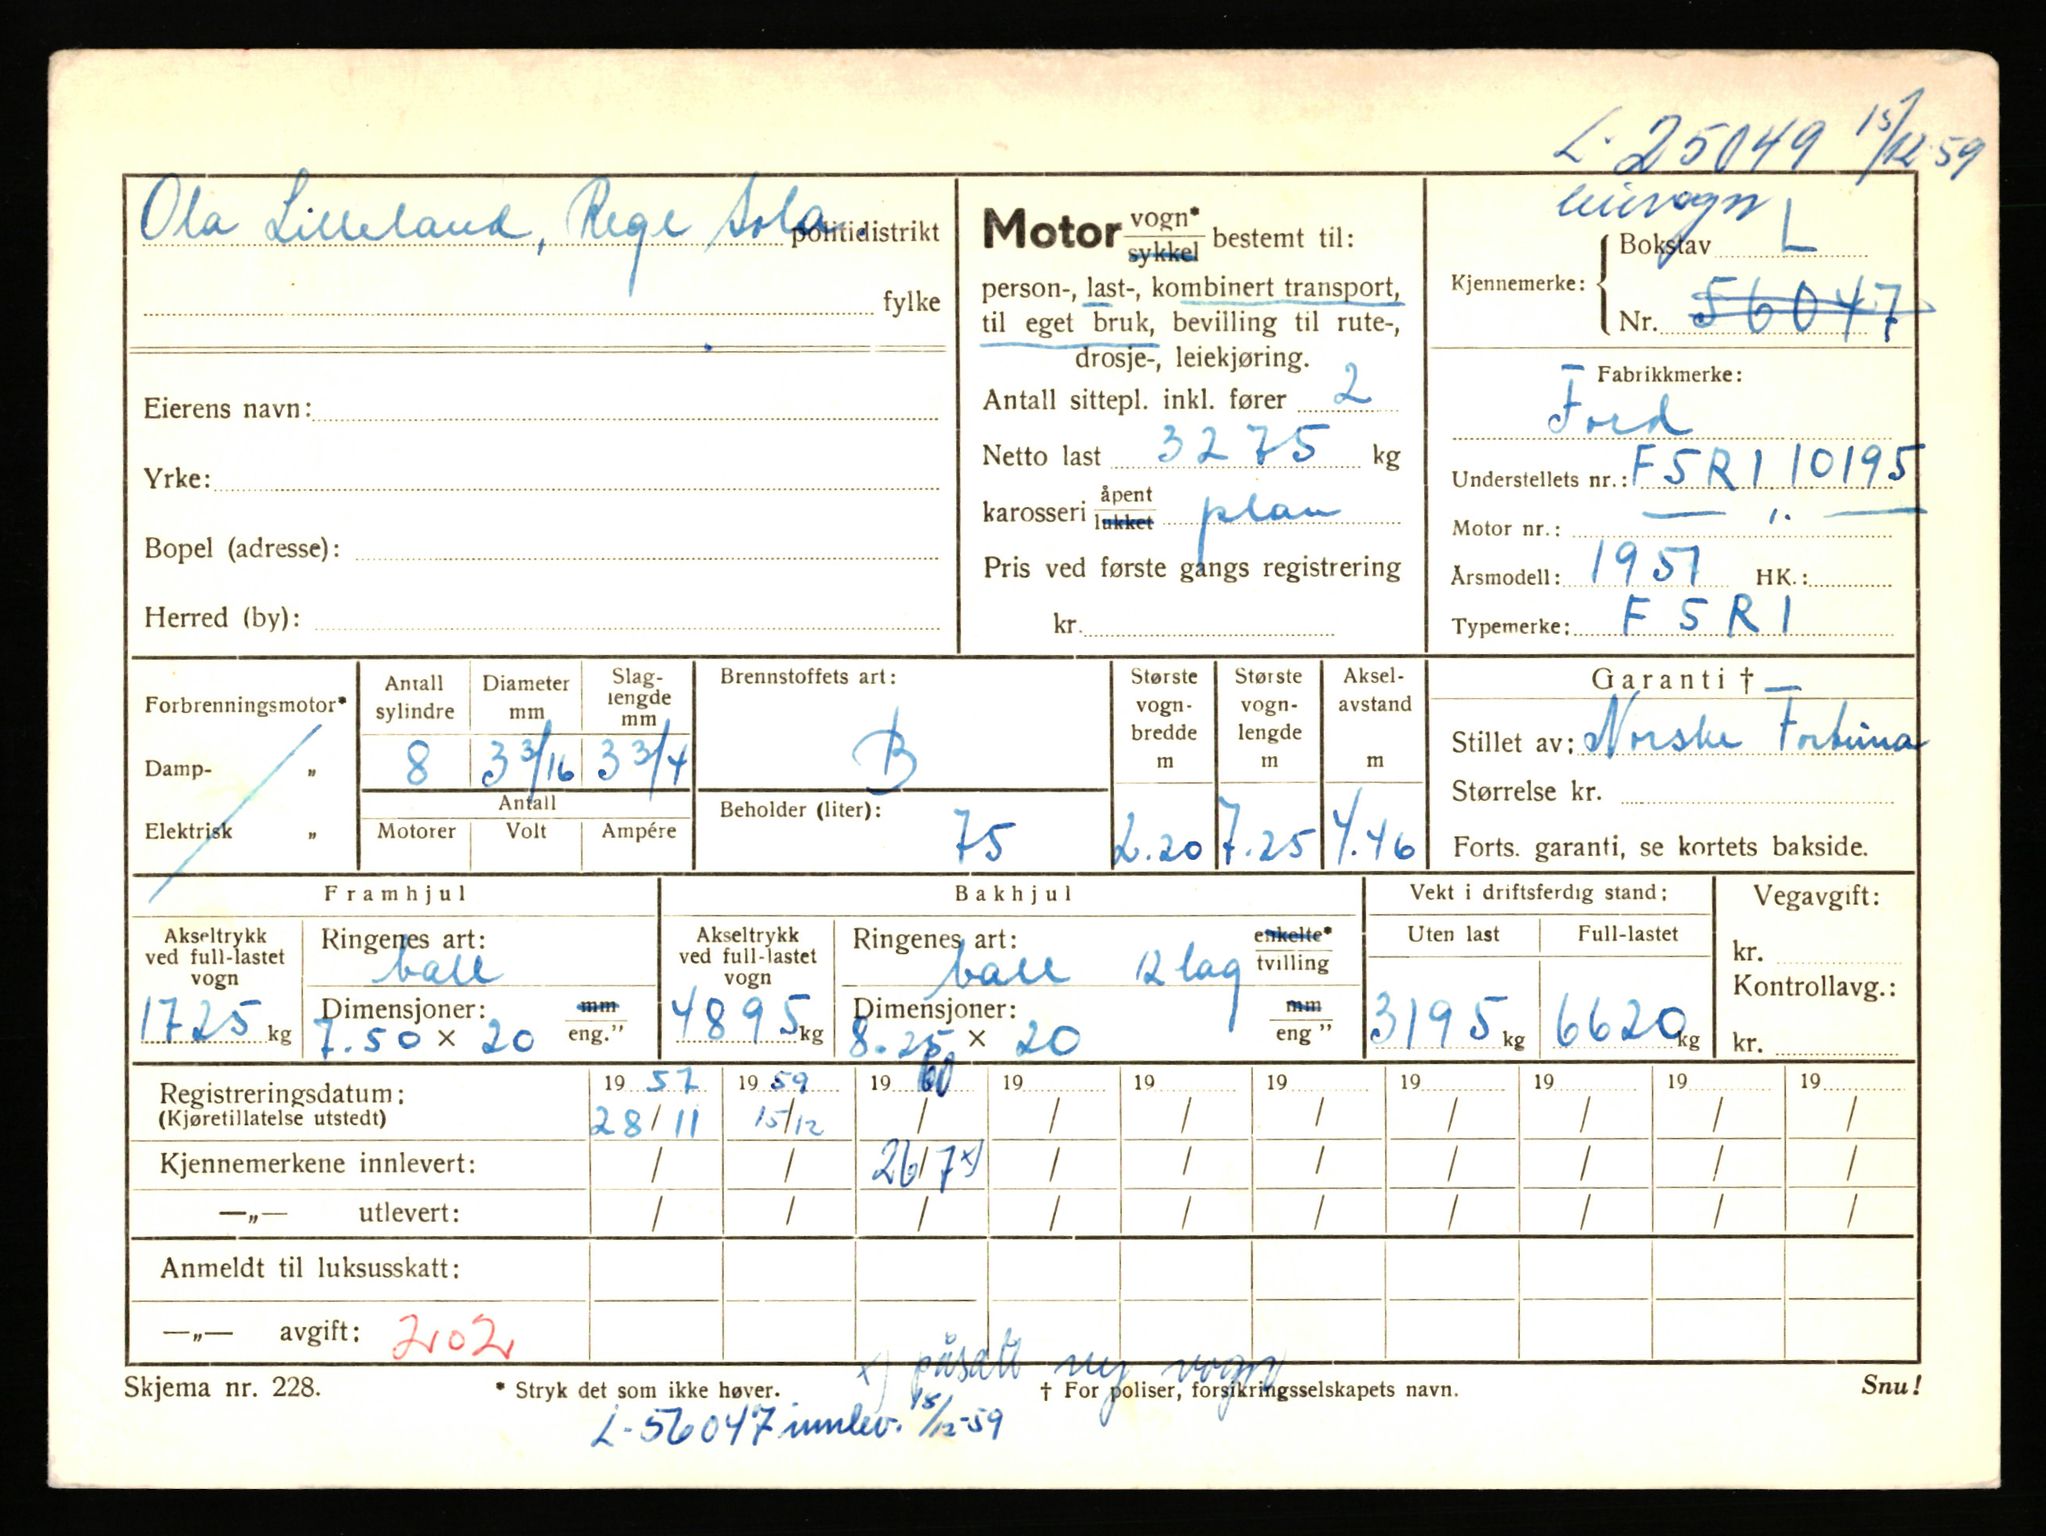 L-25049 15/12-59
leievogn
Ola Lilleland, Rege Sola.
politidistrikt
fylke
Eierens navn:
Yrke:
Bopel (adresse):
Herred (by):
Motor vogn* sykkel bestemt til:
person-, last-, kombinert transport,
til eget bruk, bevilling til rute-,
drosje-, leiekjøring.
Antall sittepl. inkl. fører 2
Netto last 3275 kg
karosseri åpent lukket plan
Pris ved første gangs registrering
kr.
Kjennemerke: Bokstav L
Nr. 56047
Fabrikkmerke:
Ford
Understellets nr.: F5R1 10195
Motor nr.: — " —
Årsmodell: 1951 HK.:
Typemerke: F5R1
Forbrenningsmotor*
Damp- "
Elektrisk "
Antall sylindre Diameter mm Slaglengde mm
8 3 3/16 3 3/4
Antall
Motorer Volt Ampére
Brennstoffets art:
B
Beholder (liter):
75
Største vogn-bredde m
2.20
Største vogn-lengde m
7.25
Aksel-avstand m
4.46
Garanti †
Stillet av: Norske Fortuna
Størrelse kr.
Forts. garanti, se kortets bakside.
Framhjul
Akseltrykk ved full-lastet vogn
1725 kg
Ringenes art:
ball
Dimensjoner: mm
7.50 x 20 eng."
Bakhjul
Akseltrykk ved full-lastet vogn
4895 kg
Ringenes art: enkelte*
ball 12 lag tvilling
Dimensjoner: mm
8.25 x 20 eng"
Vekt i driftsferdig stand:
Uten last Full-lastet
3195 kg 6620 kg
Vegavgift:
kr.
Kontrollavg.:
kr.
Registreringsdatum: 1957 1959 1960 19 19 19 19 19 19 19
(Kjøretillatelse utstedt) 28/11 15/12 / / / / / / / /
Kjennemerkene innlevert: / / 26/7 x) / / / / / / /
—„— utlevert: / / / / / / / / / /
Anmeldt til luksusskatt:
—„— avgift: 202
x) påsatt ny vogn
Skjema nr. 228. * Stryk det som ikke høver. † For poliser, forsikringsselskapets navn. Snu!
L-56047 innlev. 15/12-59